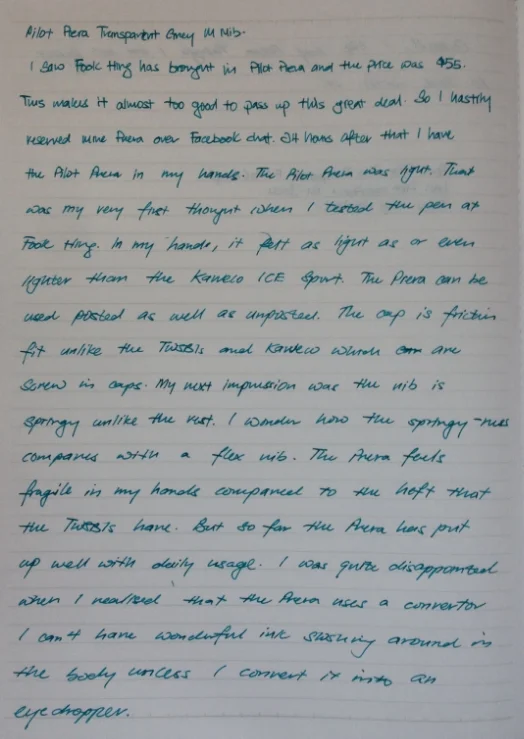 Pilot Prera Transparent Grey M Nib.
I saw Fook Hing has brought in Pilot Prera and the price was $55.
This makes it almost too good to pass up this great deal. So I hastily
reserved mine Prera over Facebook chat. 24 hours after that I have
the Pilot Prera in my hands. The Pilot Prera was light. That
was my very first thought when I tested the pen at
Fook Hing. In my hands, it felt as light as or even
lighter than the Kaweco ICE Sport. The Prera can be
used posted as well as unposted. The cap is friction
fit unlike the TWSBIs and Kaweco which are
screw in caps. My next impression was the nib is
springy unlike the rest. I wonder how the springy-ness
compares with a flex nib. The Prera feels
fragile in my hands compared to the heft that
the TWSBIs have. But so far the Prera has put
up well with daily usage. I was quite disappointed
when I realised that the Prera uses a convertor
I can't have wonderful ink sloshing around in
the body unless I convert it into an
eyedropper.